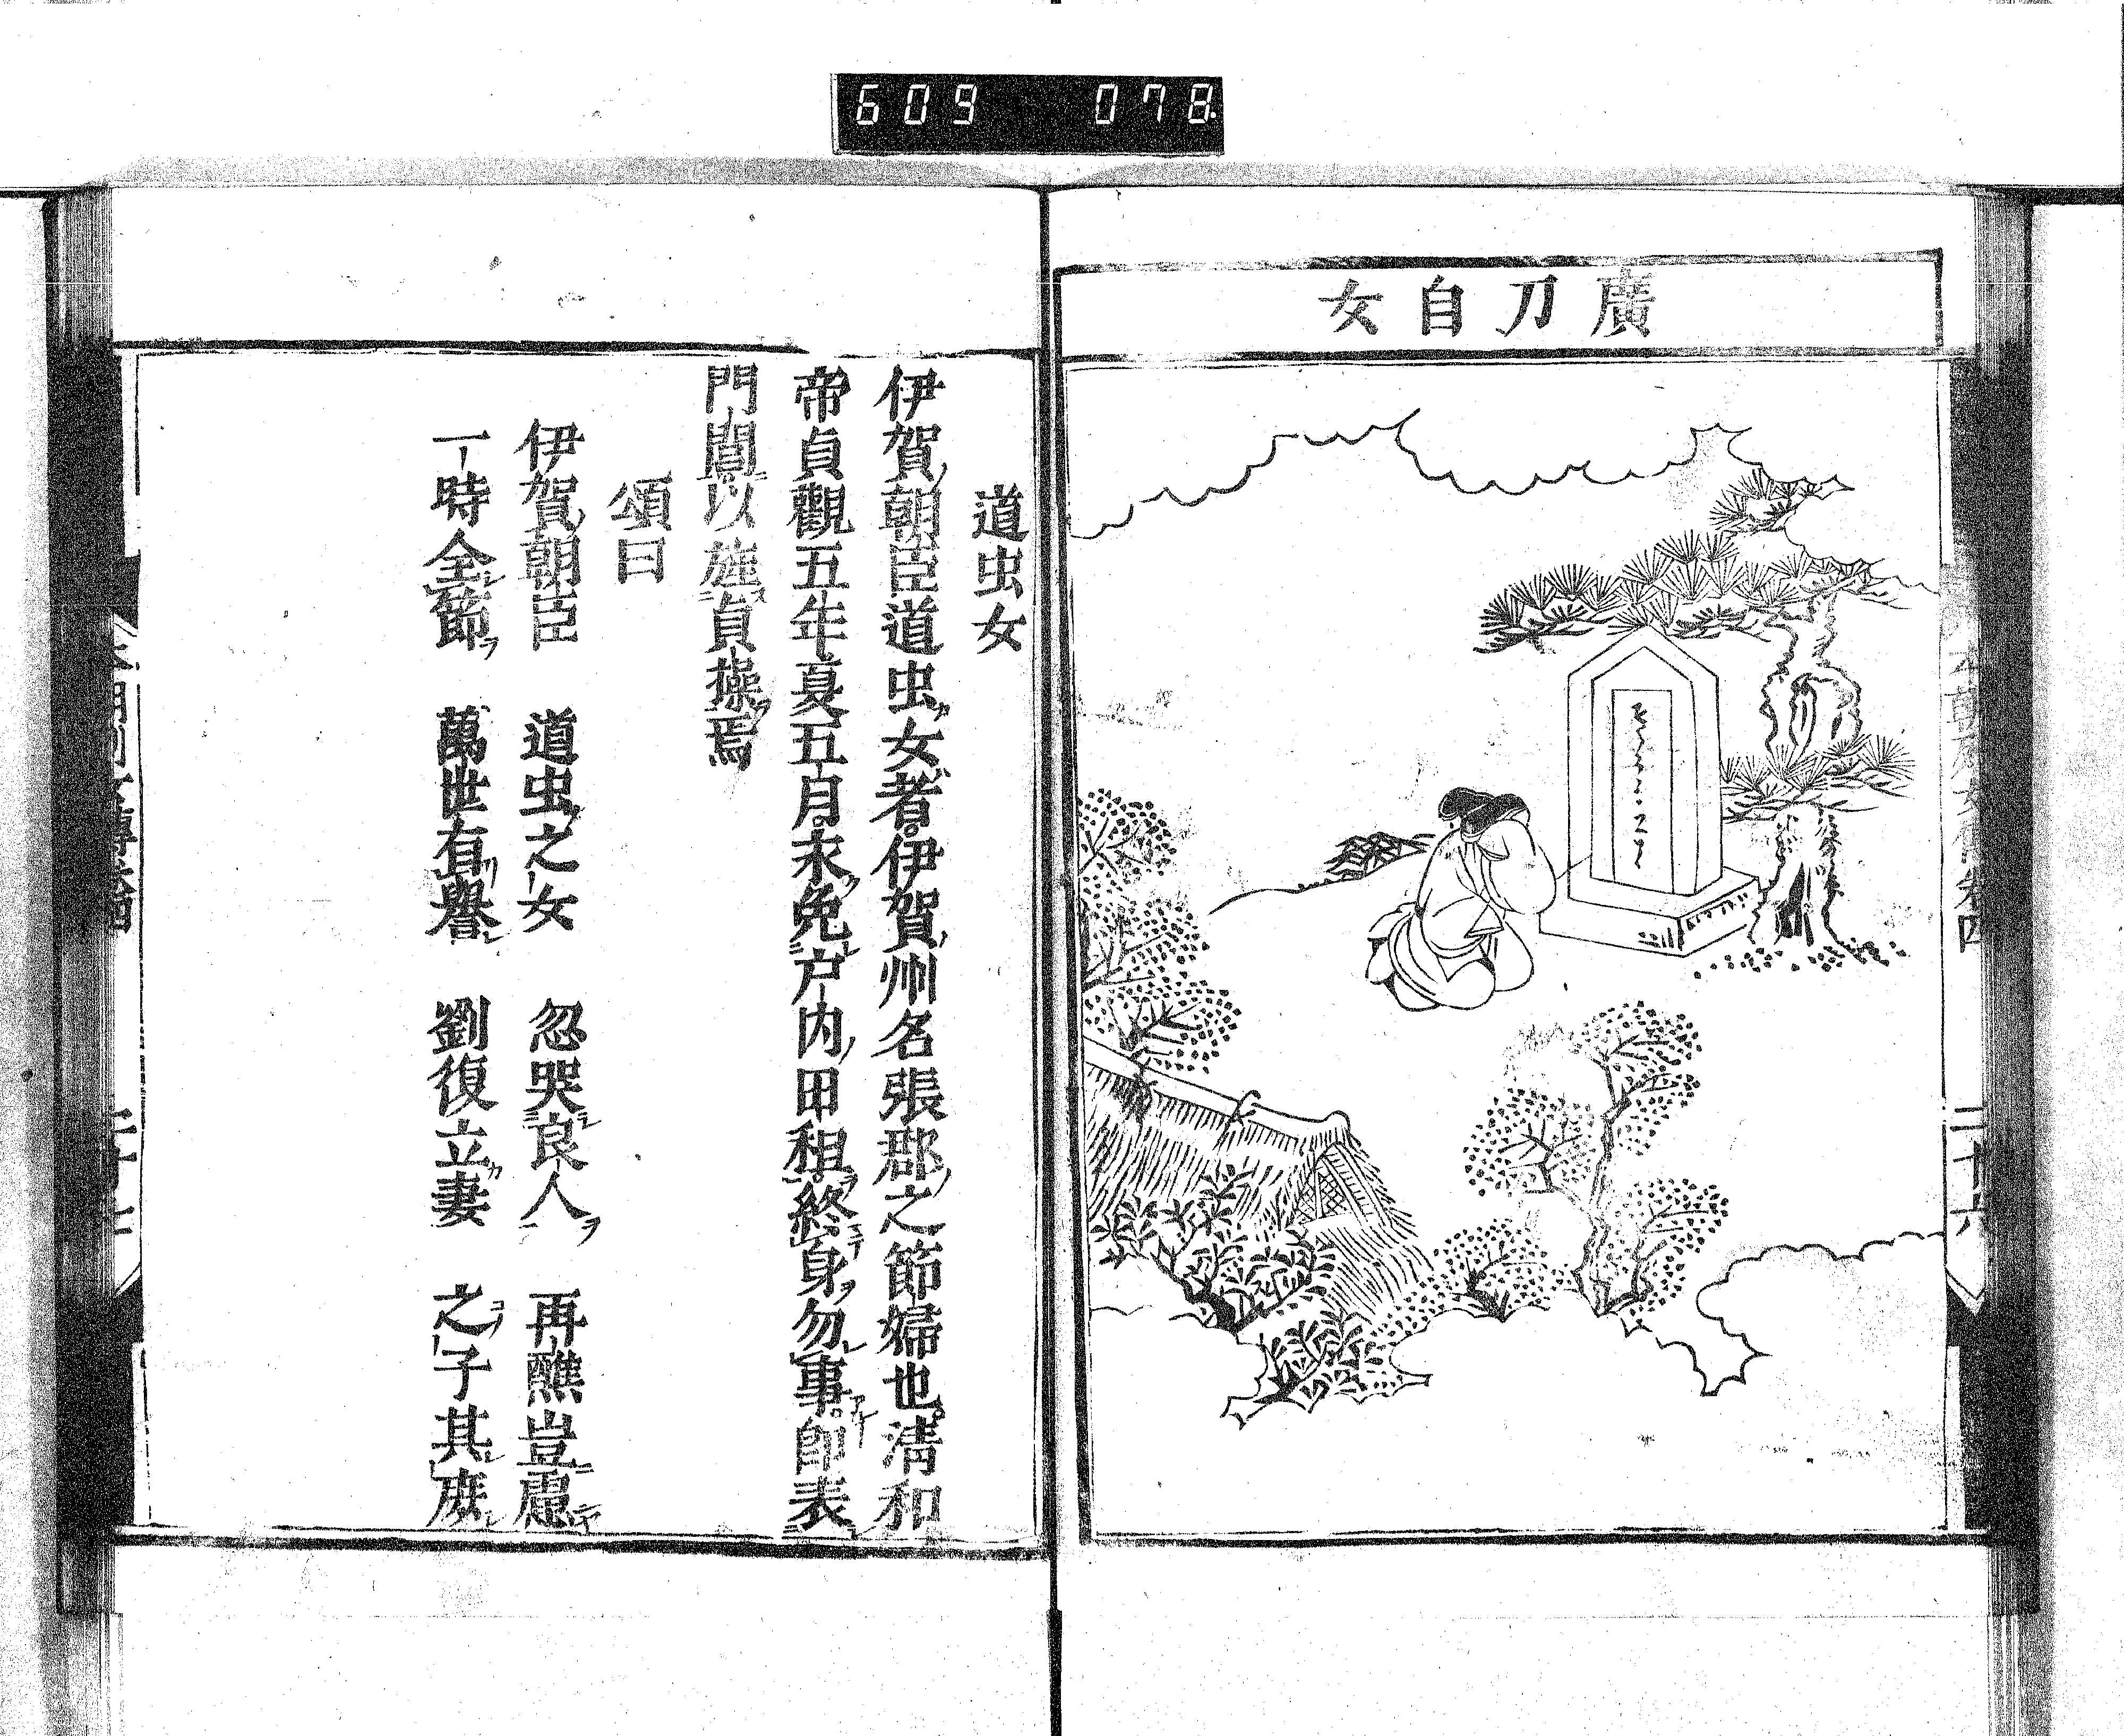 609 078
廣刀自女
道虫女
伊賀朝臣道虫女者。伊賀州名張郡之節婦也。清和
帝貞觀五年夏五月。永免戸内田租。終身勿事。即表
門閭以旌貞操焉
頌曰
伊賀朝臣 道虫之女 忽哭良人 再醮豈慮
一時全節 萬世有譽 劉復立妻 之子其庶